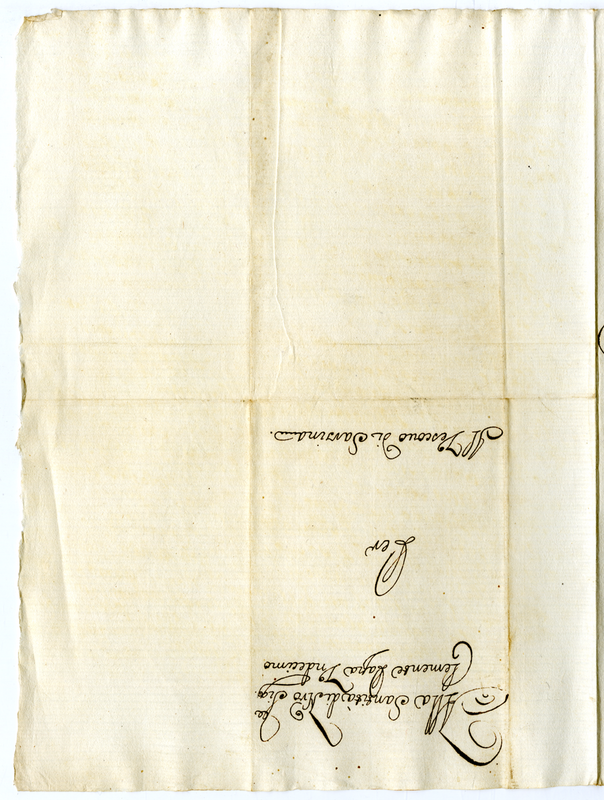 Alla Santità di Nro Sig.re
Clemente Papa Undecimo
Per
Il Vescouo di Sarsina.